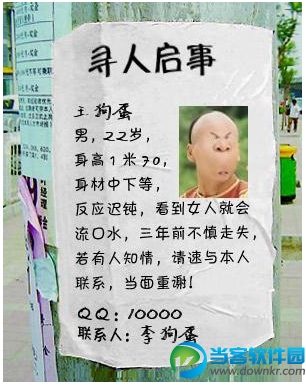 寻人启事
王狗蛋
男，22岁，
身高1米30，
身材中下等，
反应迟钝，看到女人就会
流口水，三年前不慎走失，
若有人知情，请速与本人
联系，当面重谢！
QQ：10000
联系人：李狗蛋
当客软件园
www.downkr.com